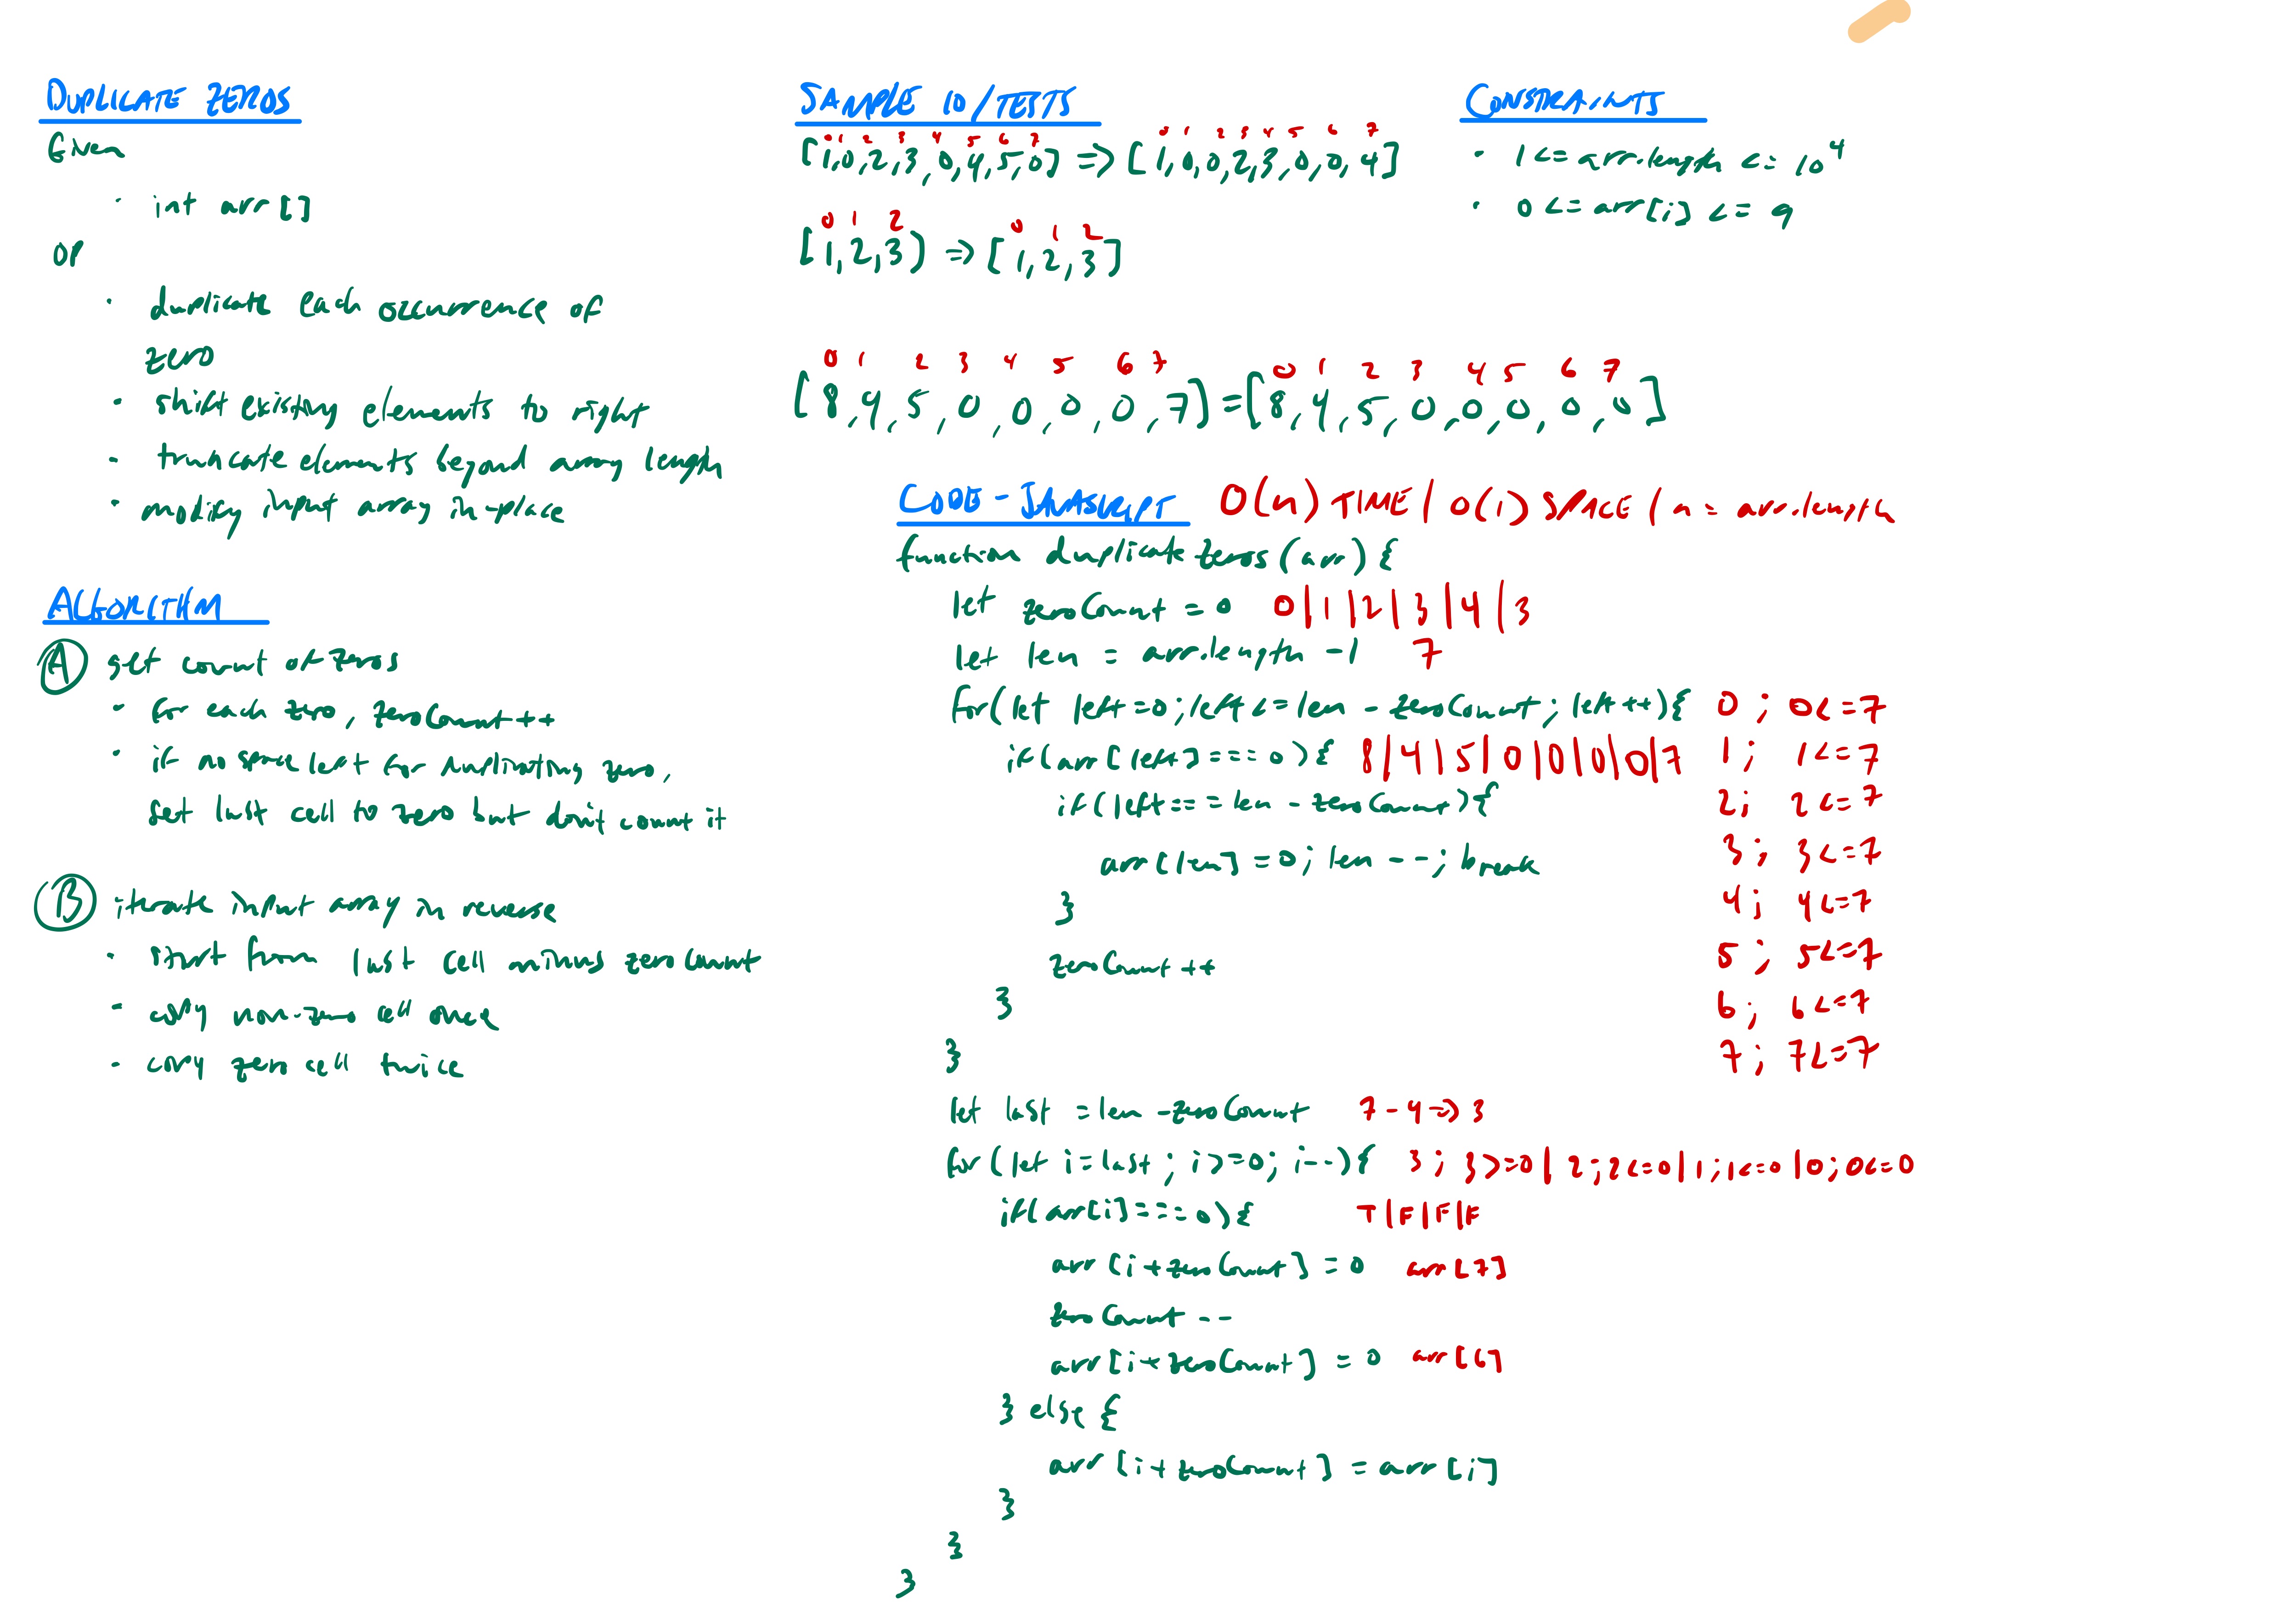 DUPLICATE ZEROS
Given
· int arr[]
OP
· duplicate each occurrence of
zero
· shift existing elements to right
- truncate elements beyond array length
· modify input array in-place
ALGORITHM
A get count of zeros
· for each zero, zeroCount++
· if no space left for duplicating zero,
set last cell to zero but don't count it
B iterate input array in reverse
· start from last cell minus zeroCount
- copy non-zero cell once
- copy zero cell twice
SAMPLE IO/TESTS
0 1 2 3 4 5 6 7 0 1 2 3 4 5 6 7
[1,0,2,3,0,4,5,0] => [1,0,0,2,3,0,0,4]
0 1 2 0 1 2
[1,2,3) => [1,2,3]
0 1 2 3 4 5 6 7 0 1 2 3 4 5 6 7
[8,4,5,0,0,0,0,7] = [8,4,5,0,0,0,0,0]
CONSTRAINTS
· 1 <= arr.length <= 10^4
· 0 <= arr[i] <= 9
CODE - JAVASCRIPT O(n) TIME / O(1) SPACE / n = arr.length
function duplicateZeros(arr){
let zeroCount = 0 0|1|2|3|4|3
let len = arr.length -1 7
for(let left=0;left<=len - zeroCount; left++){ 0 ; 0<=7
if(arr[left]===0){ 8|4|5|0|0|0|0|7 1; 1<=7
if(left===len - zeroCount){ 2; 2<=7
arr[len] =0; len--; break 3; 3<=7
} 4; 4<=7
zeroCount++ 5; 5<=7
} 6; 6<=7
} 7; 7<=7
let last =len -zeroCount 7-4=>3
for(let i=last; i>=0; i--){ 3; 3>=0| 2;2<=0|1;1<=0|0;0<=0
if(arr[i]===0){ T|F|F|F
arr[i+zeroCount] = 0 arr[7]
zeroCount--
arr[i+zeroCount] = 0 arr[6]
} else {
arr[i+zeroCount] = arr[i]
}
}
}